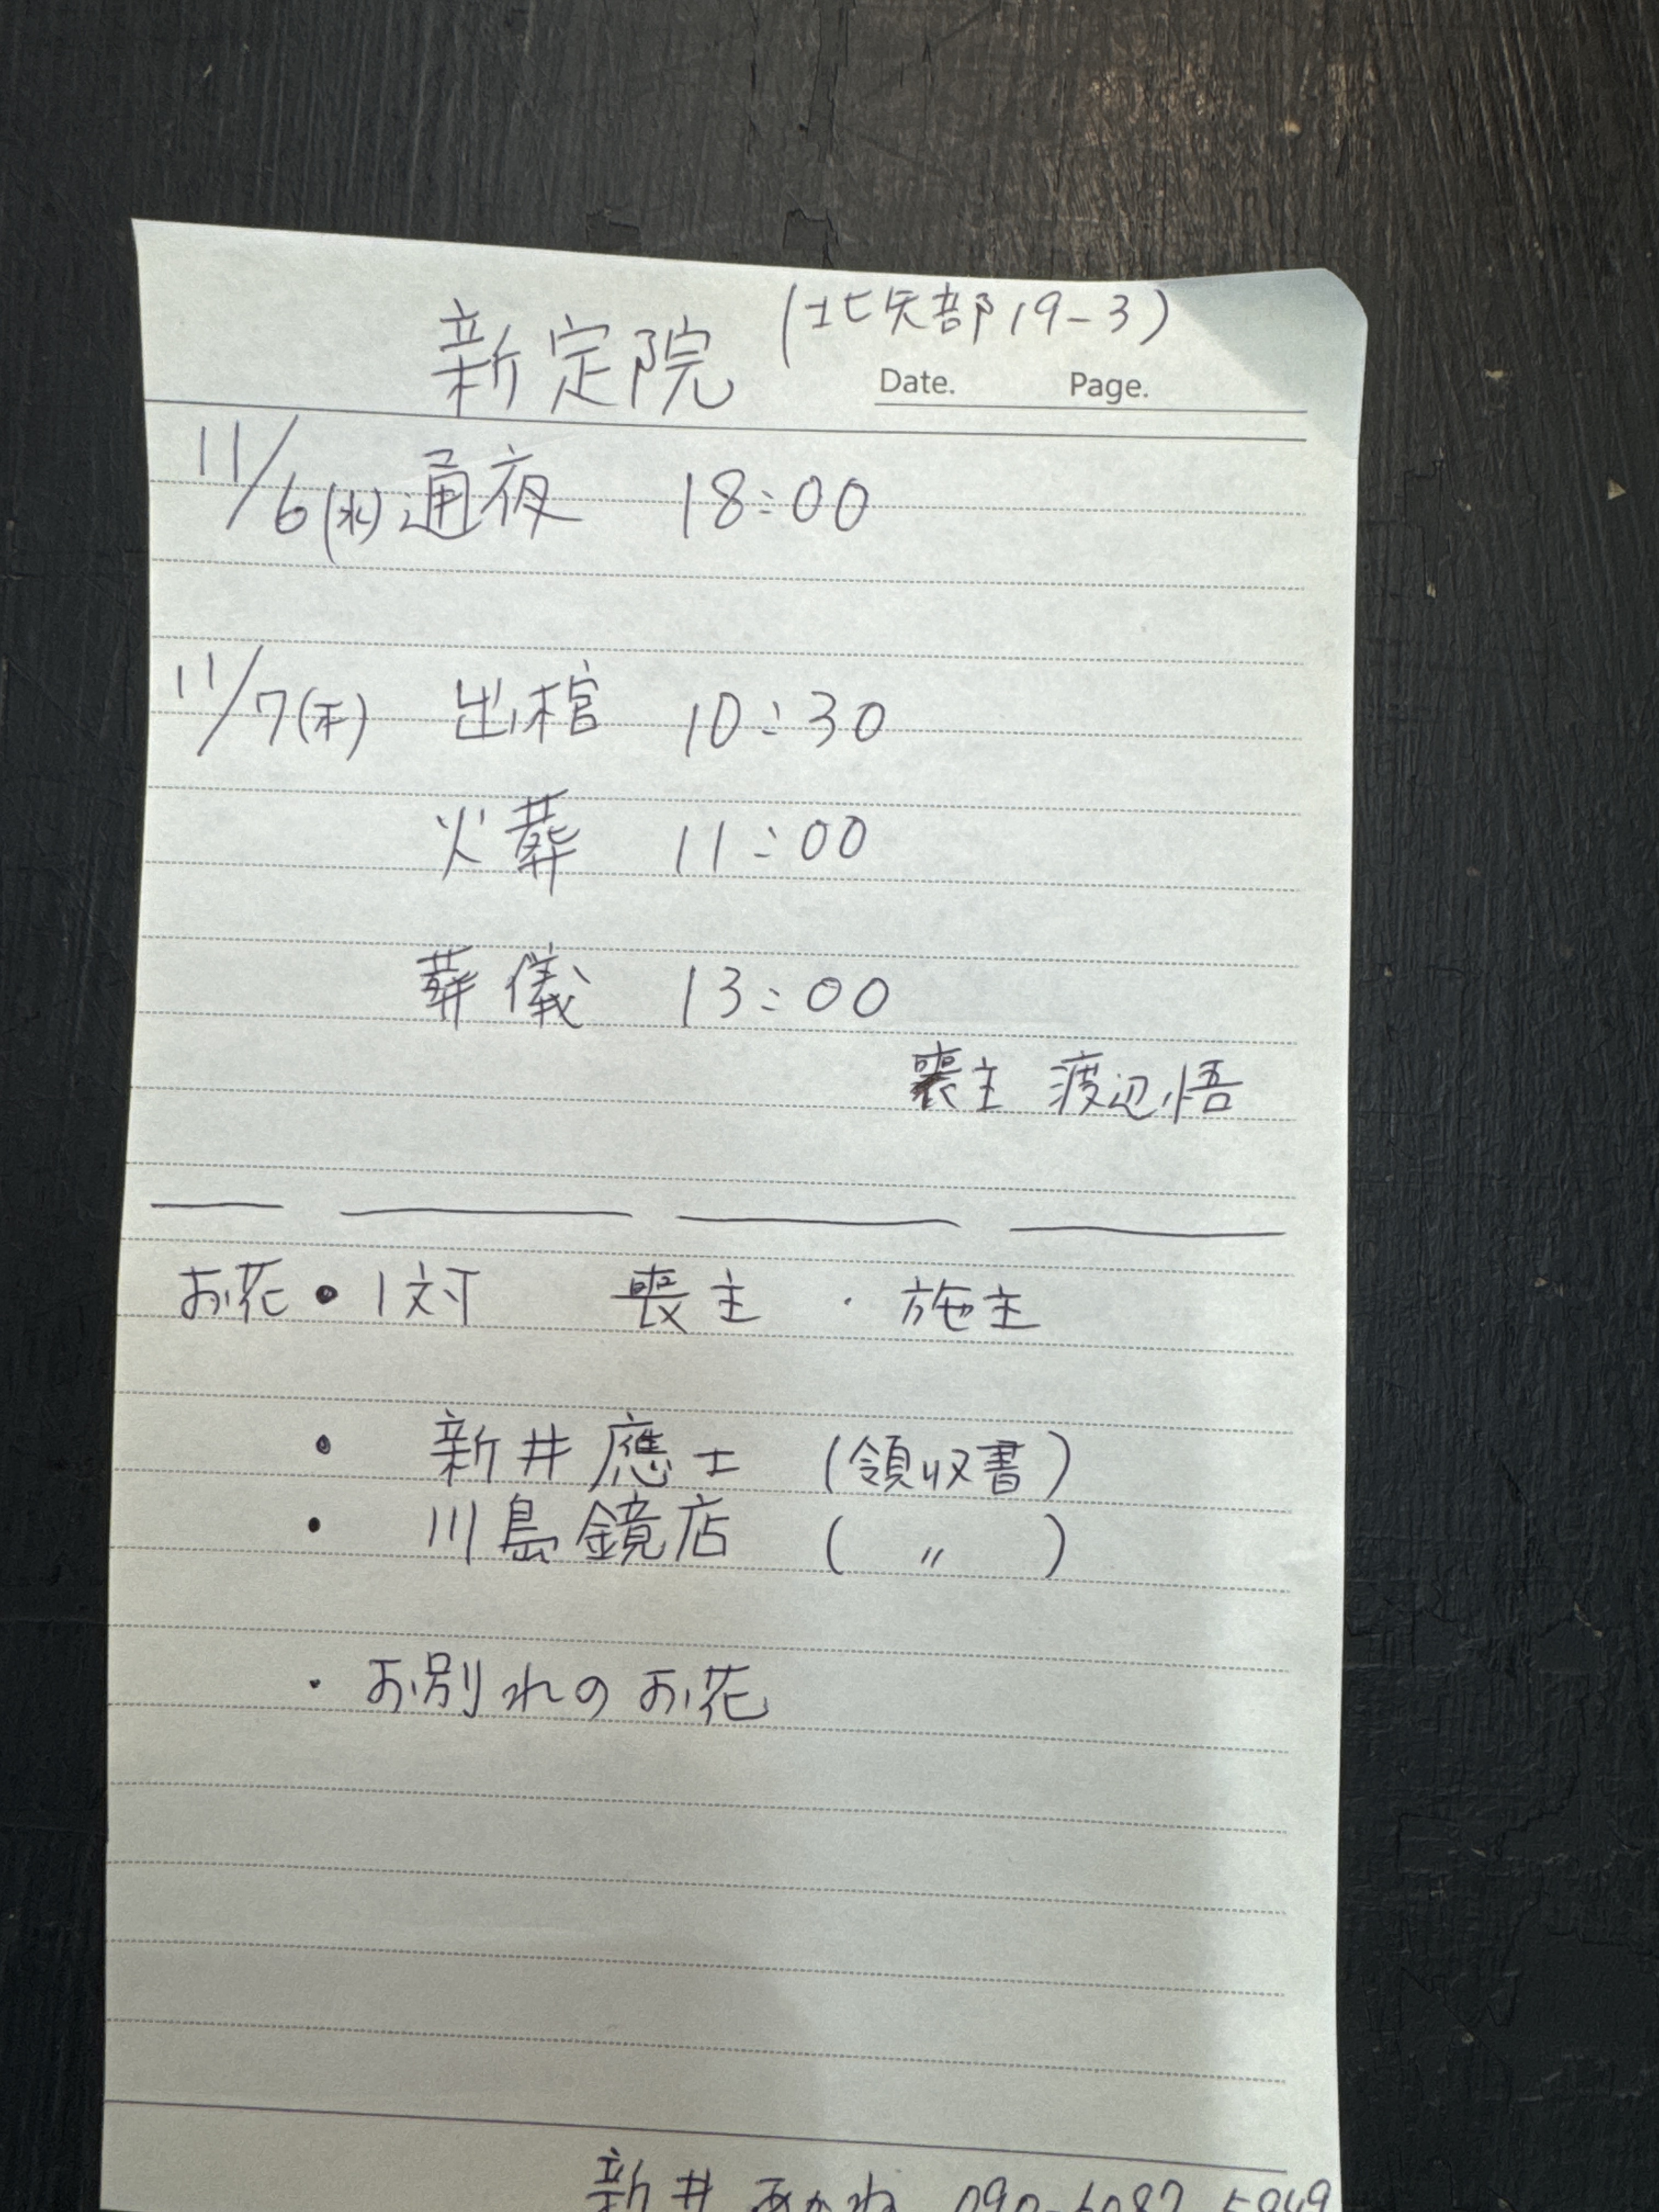 新定院 (北矢部19-3)
Date. Page.
11/6(水)通夜 18:00
11/7(木) 出棺 10:30
火葬 11:00
葬儀 13:00
喪主 渡辺悟
お花・1対 喪主・施主
・ 新井應士 (領収書)
・ 川島鏡店 ( 〃 )
・お別れのお花
新井あかね